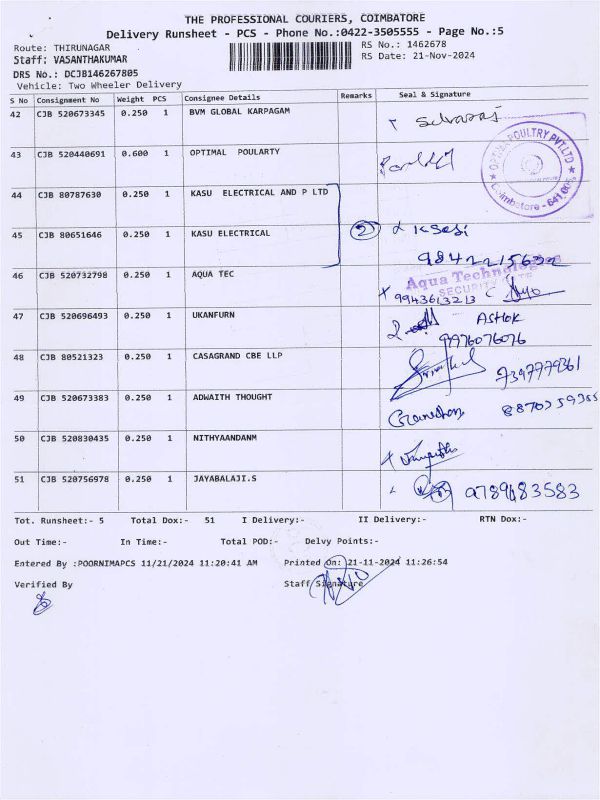 THE PROFESSIONAL COURIERS, COIMBATORE
Delivery Runsheet - PCS - Phone No.:0422-3505555 - Page No.:5
Route: THIRUNAGAR
RS No.: 1462678
Staff: VASANTHAKUMAR
RS Date: 21-Nov-2024
DRS No.: DCJB146267805
Vehicle: Two Wheeler Delivery
S No Consignment No Weight PCS Consignee Details Remarks Seal & Signature
42 CJB 520673345 0.250 1 BVM GLOBAL KARPAGAM Selvaraj
43 CJB 520440691 0.600 1 OPTIMAL POULARTY
POULTRY PVT.LTD
Coimbatore - 641 005
44 CJB 80787630 0.250 1 KASU ELECTRICAL AND P LTD
45 CJB 80651646 0.250 1 KASU ELECTRICAL 2 K Sasi
9842215632
46 CJB 520732798 0.250 1 AQUA TEC
Aqua Technolog
SECURITY
9943613213
47 CJB 520696493 0.250 1 UKANFURN ASHOK
9976076076
48 CJB 80521323 0.250 1 CASAGRAND CBE LLP 7397779361
49 CJB 520673383 0.250 1 ADWAITH THOUGHT 8870259355
50 CJB 520830435 0.250 1 NITHYAANDANM
51 CJB 520756978 0.250 1 JAYABALAJI.S 9789683583
Tot. Runsheet:- 5 Total Dox:- 51 I Delivery:- II Delivery:- RTN Dox:-
Out Time:- In Time:- Total POD:- Delvy Points:-
Entered By :POORNIMAPCS 11/21/2024 11:20:41 AM Printed On: 21-11-2024 11:26:54
Verified By Staff Signature